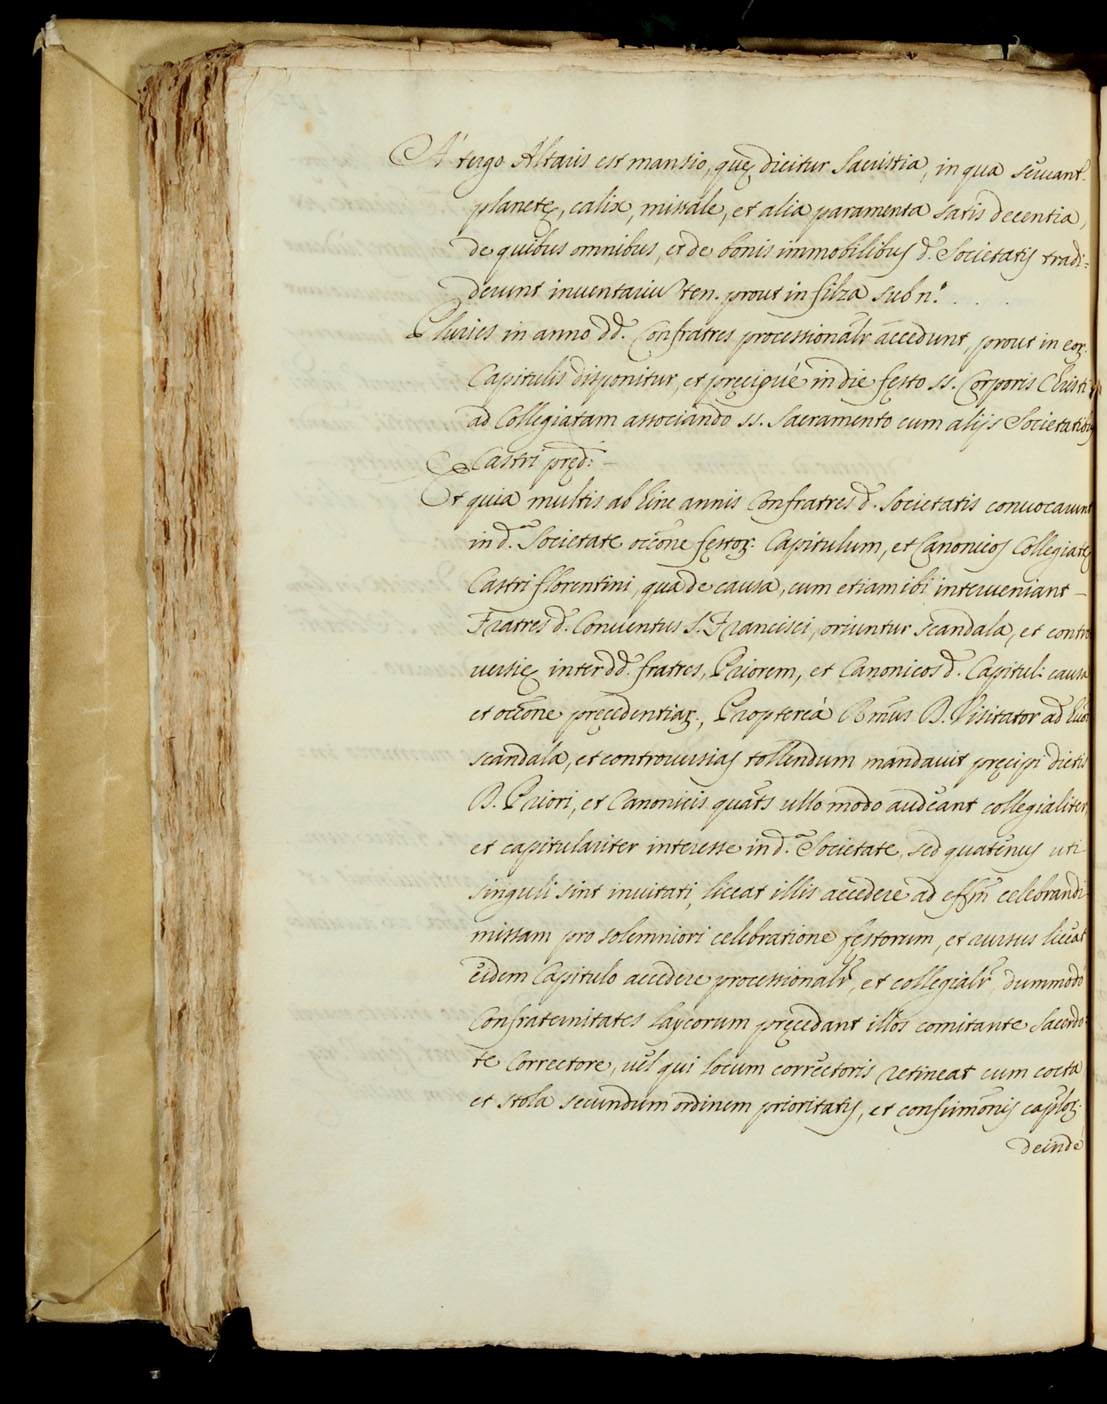 A' tergo Altaris est mansio, quę dicitur Sacristia, in qua seruant.r
planetę, calix, missale, et alia paramenta satis decentia,
de quibus omnibus, et de bonis immobilibus d. Societatis tradi:
derunt inuentariũ ten. prout in filza sub n.o . . . .
Pluries in anno dd. Confratres processionalr accedunt, prout in eoꝝ.
Capitulis disponitur, et pręcipuè in die festo SS. Corporis Christi
ad Collegiatam associando SS. Sacramento cum alijs Societatibus
Castri pręd:i —
Et quia multis ab hinc annis Confratres d. Societatis conuocarunt
in d.a Societate occ.one festoꝝ: Capitulum, et Canonicos Collegiatę
Castri florentini, qua de causa, cum etiam ibi interueniant —
Fratres d. Conuentus S. Francisci, oriuntur scandala, et contro
uersię inter dd. fratres, Priorem, et Canonicos d. Capitul: causa
et occ.one pręcedentiaꝝ., Proptereà R.mus D. Visitator ad huiꝰ
scandala, et controuersias tollendum mandauit pręcipi dictis
D. Priori, et Canonicis quat.s ullo modo audeant collegialiter,
et capitulariter interesse in d.a Societate, sed quatenus uti
singuli sint inuitati, liceat illis accedere ad eff.m celebrandi
missam pro solemniori celebratione festorum, et rursus liceat
eidem Capitulo accedere processionalr, et collegialr, dummodo
Confraternitates laycorum pręcedant illos comitante Sacerdo
te Correctore, uel qui locum correctoris retineat cum cotta
et stola secundum ordinem prioritatis, et confirm.onis cap.loꝝ.
deinde